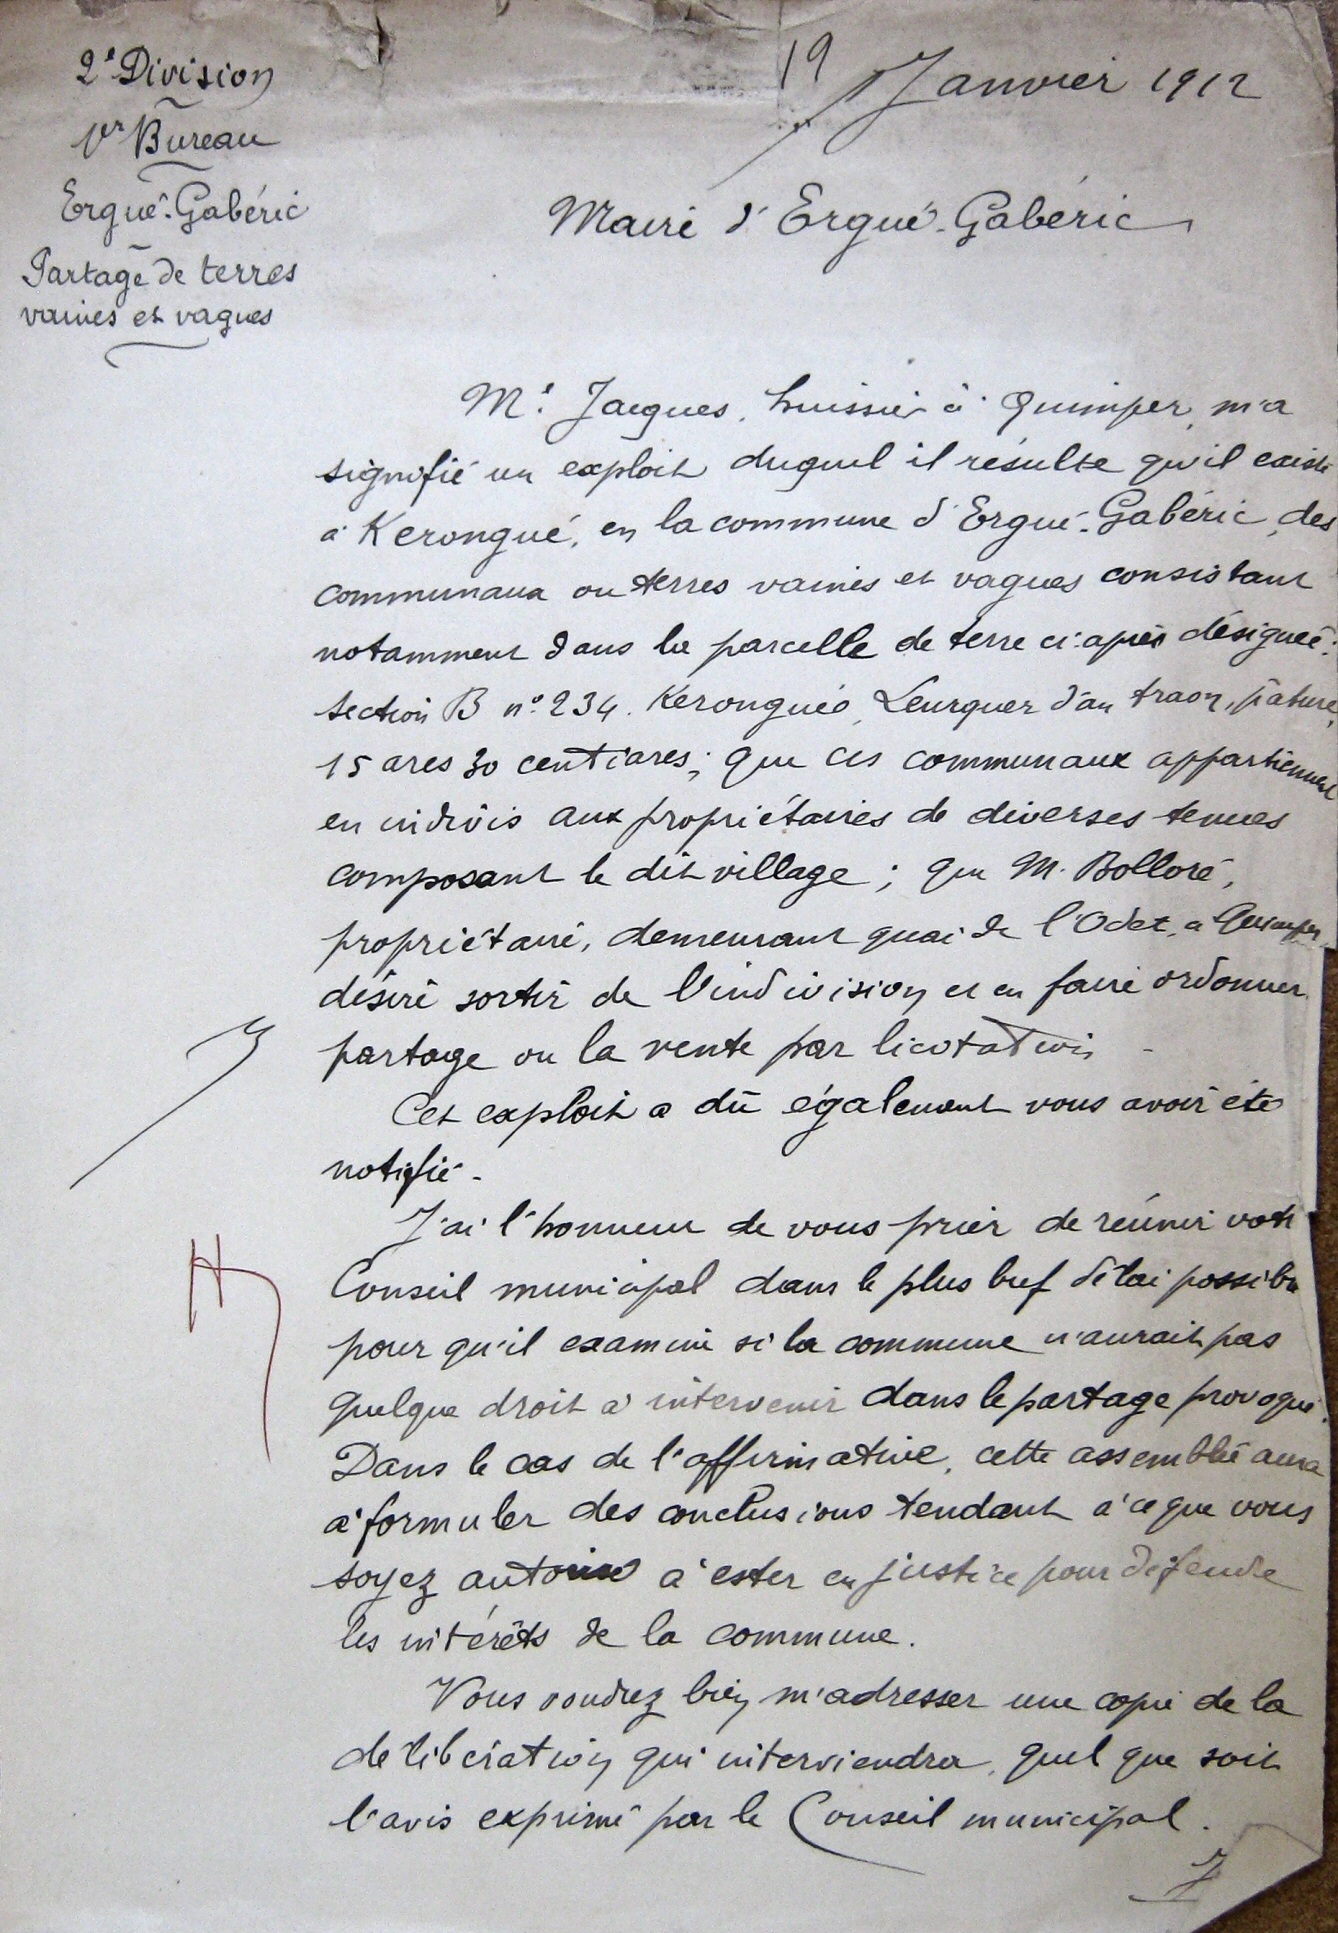 2e Division
1er Bureau
Ergué-Gabéric
Partage de terres
vaines et vagues
19 Janvier 1912
Maire d'Ergué-Gabéric
Me Jacques, huissier à Quimper, m'a
signifié un exploit duquel il résulte qu'il existe
à Kerongué, en la commune d'Ergué-Gabéric, des
communaux ou terres vaines et vagues consistant
notamment dans la parcelle de terre ci-après désignée :
Section B n° 234. Kerongué, Leurquer d'an traon, pâture,
15 ares 30 centiares ; que ces communaux appartiennent
en indivis aux propriétaires de diverses tenues
composant le dit village ; que M. Bolloré,
propriétaire, demeurant quai de l'Odet, à Quimper,
désire sortir de l'indivision et en faire ordonner
partage ou la vente par licitation -
Cet exploit a dû également vous avoir été
notifié -
J'ai l'honneur de vous prier de réunir votre
Conseil municipal dans le plus bref délai possible
pour qu'il examine si la commune n'aurait pas
quelque droit à intervenir dans le partage provoqué.
Dans le cas de l'affirmative, cette assemblée aura
à formuler des conclusions tendant à ce que vous
soyez autorisé à ester en justice pour défendre
les intérêts de la commune.
Vous voudrez bien m'adresser une copie de la
délibération qui interviendra, quel que soit
l'avis exprimé par le Conseil municipal.